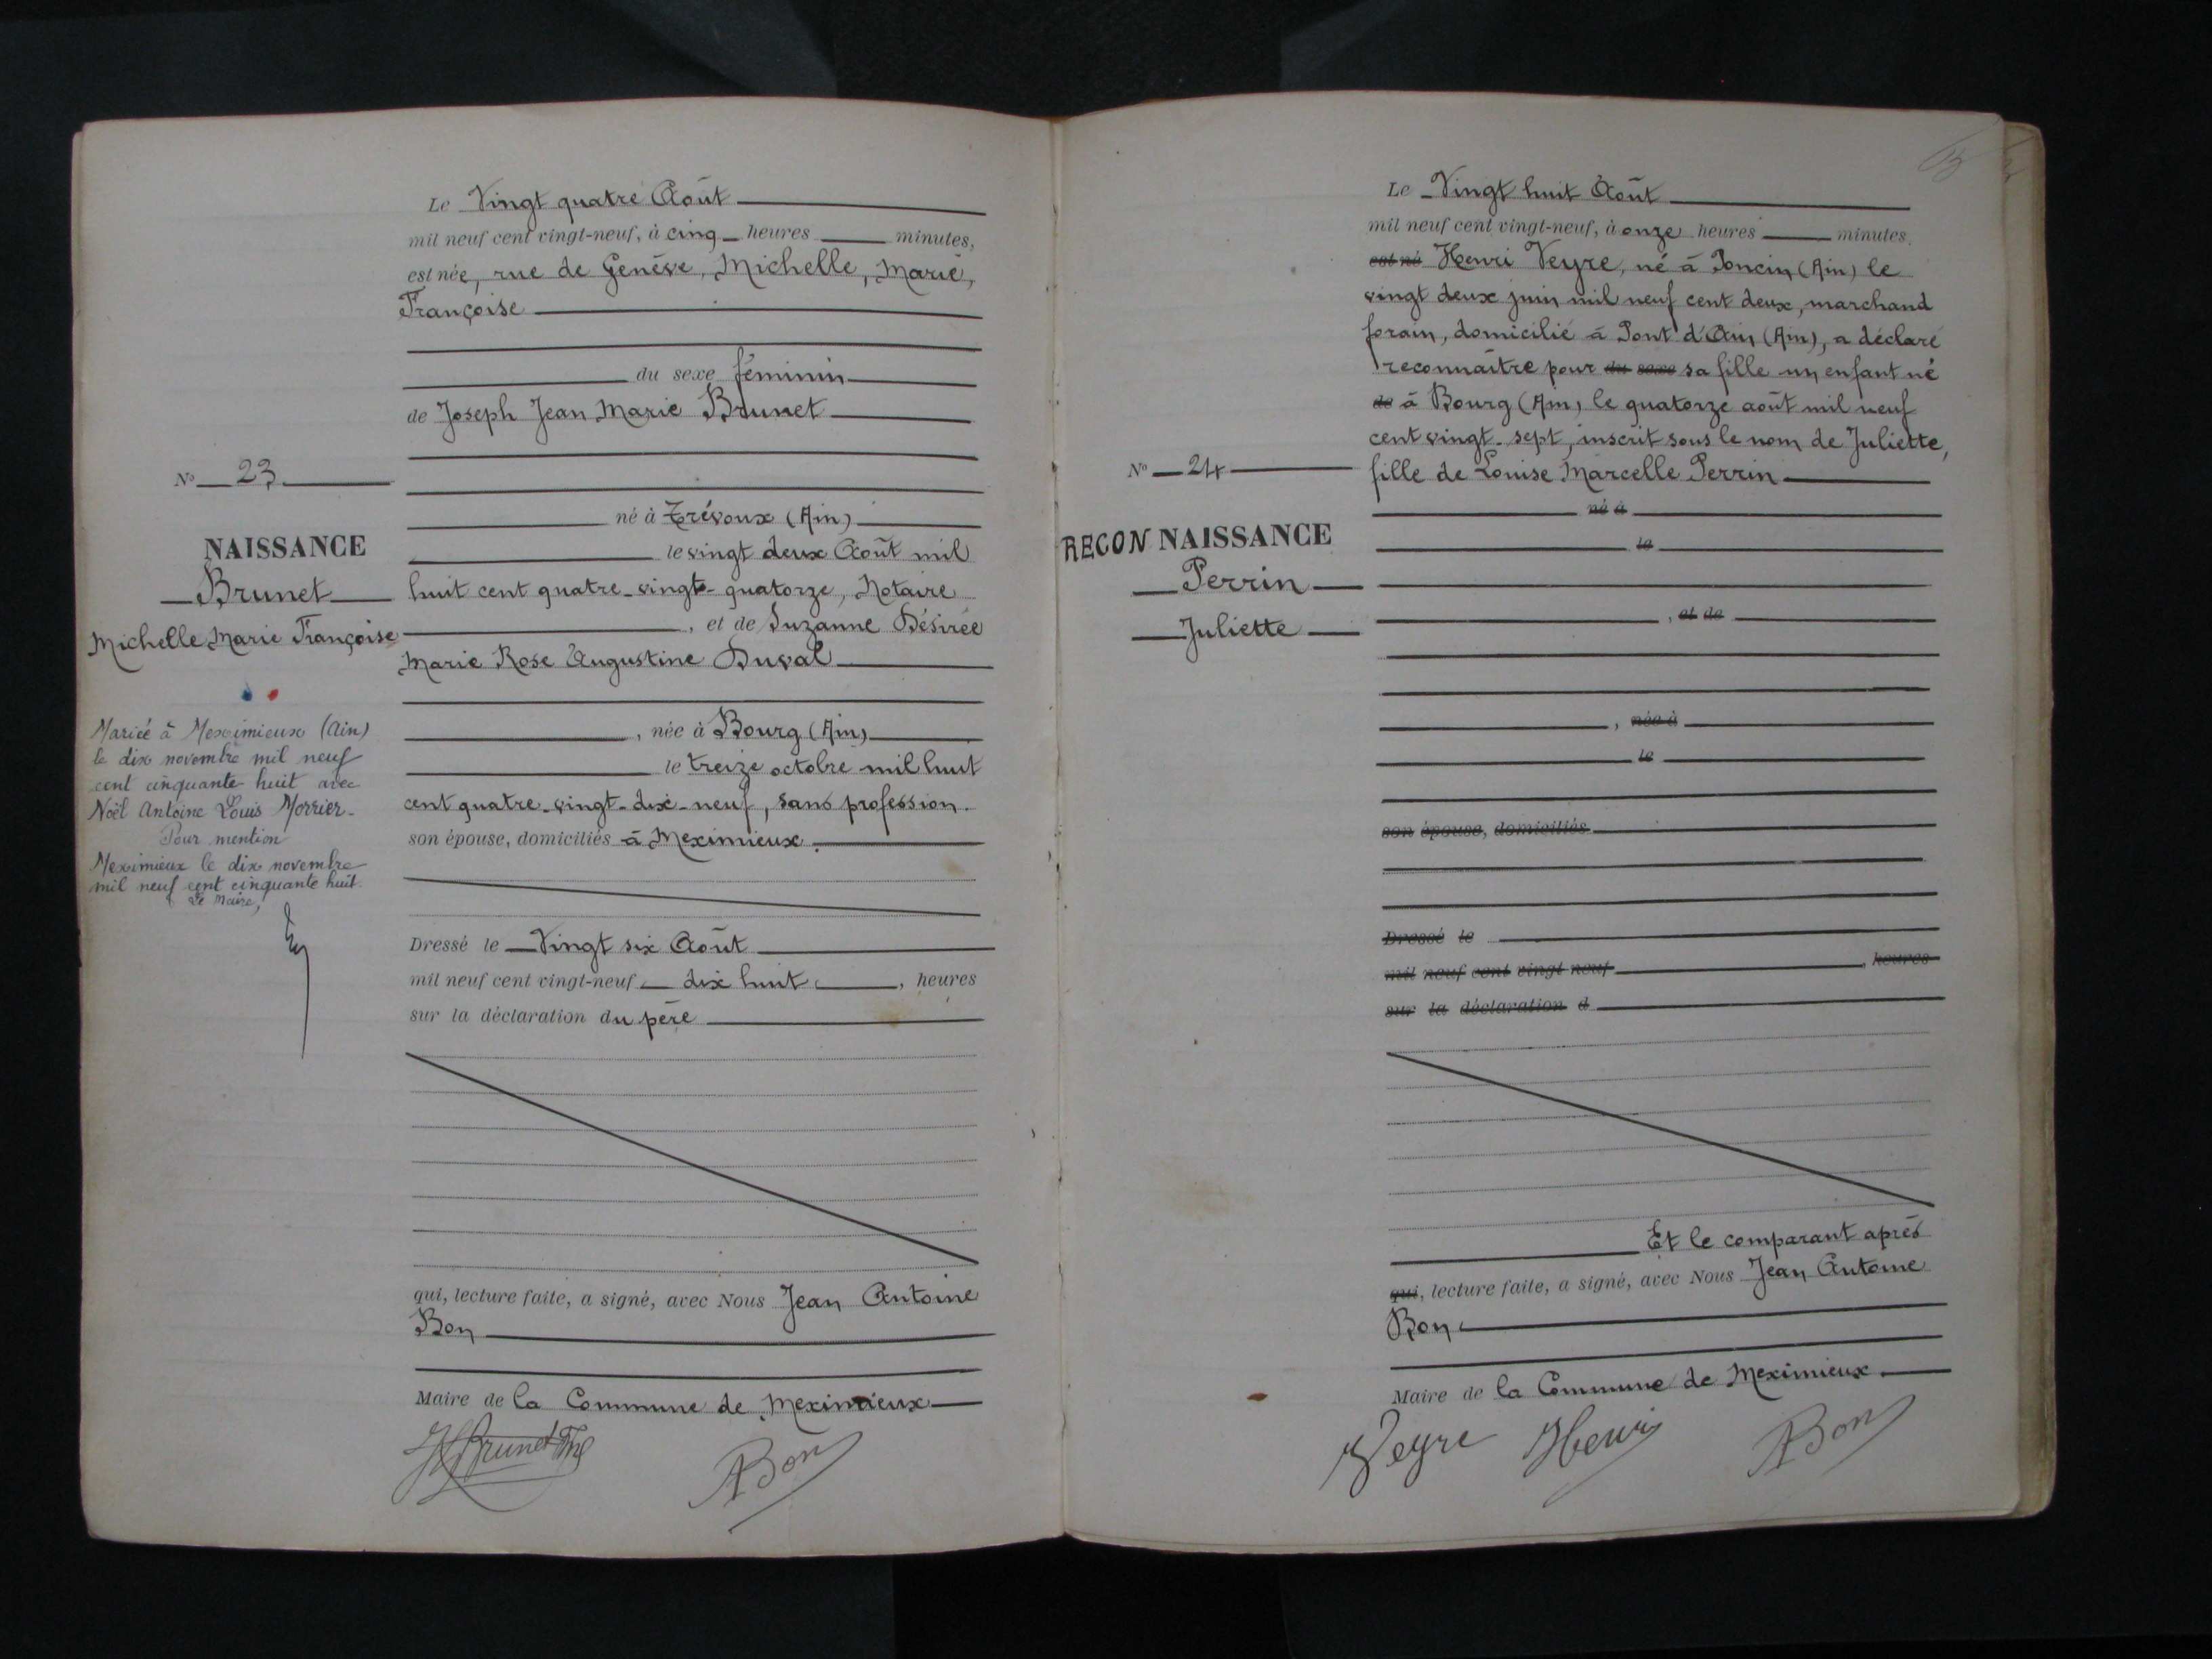 Le Vingt quatre Août
mil neuf cent vingt-neuf, à cinq heures minutes,
est née, rue de Genève, Michelle, Marie,
Françoise
du sexe féminin
de Joseph Jean Marie Brunet
N° 23
né à Trévoux (Ain)
NAISSANCE
le vingt deux Août mil
Brunet
huit cent quatre-vingt-quatorze, Notaire
Michelle Marie Françoise
, et de Suzanne Désirée
Marie Rose Augustine Duval
Mariée à Meximieux (Ain)
le dix novembre mil neuf
cent cinquante-huit avec
Noël Antoine Louis Morrier.
Pour mention
Meximieux le dix novembre
mil neuf cent cinquante huit.
Le Maire,
, née à Bourg (Ain)
le treize octobre mil huit
cent quatre-vingt-dix-neuf, sans profession.
son épouse, domiciliés à Meximieux.
Dressé le Vingt six Août
mil neuf cent vingt-neuf dix huit , heures
sur la déclaration du père
qui, lecture faite, a signé, avec Nous Jean Antoine
Bon
Maire de la Commune de Meximieux
Brunet
Bon
Le Vingt huit Août
mil neuf cent vingt-neuf, à onze heures minutes.
est né Henri Veyre, né à Poncin (Ain) le
vingt deux juin mil neuf cent deux, marchand
forain, domicilié à Pont d'Ain (Ain), a déclaré
reconnaître pour du sexe sa fille un enfant né
de à Bourg (Ain) le quatorze août mil neuf
cent vingt-sept, inscrit sous le nom de Juliette,
N° 24
fille de Louise Marcelle Perrin
né à
RECONNAISSANCE
le
Perrin
Juliette
, et de
, née à
le
son épouse, domiciliés
Dressé le
mil neuf cent vingt-neuf , heures
sur la déclaration d
Et le comparant après
qui, lecture faite, a signé, avec Nous Jean Antoine
Bon
Maire de la Commune de Meximieux.
Veyre Henri
Bon